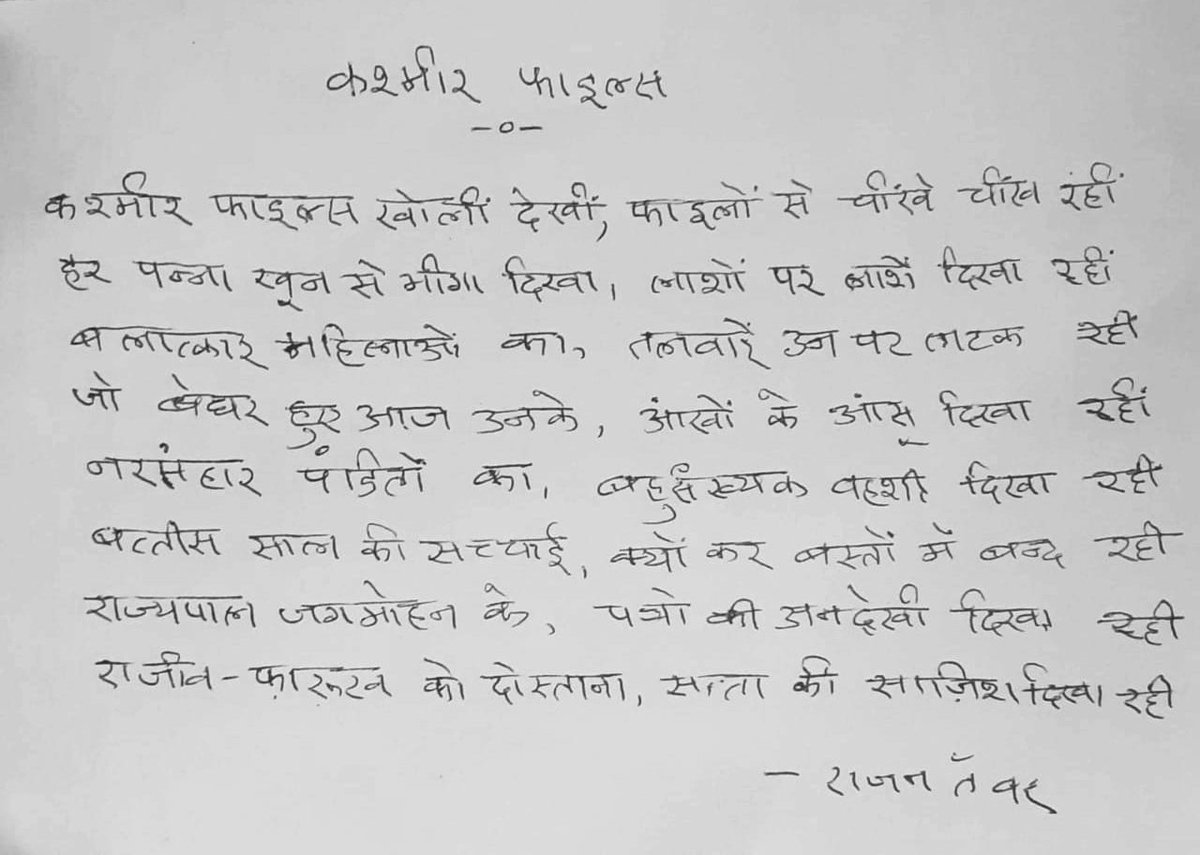 कश्मीर फाइल्स
-०-
कश्मीर फाइल्स खोलीं देखीं, फाइलों से चींखे चींख रहीं
हर पन्ना खून से भीगा दिखा, लाशों पर लाशें दिखा रहीं
बलात्कार महिलाओं का, तलवारें उन पर लटक रही
जो बेघर हुए आज उनके, आंखों के आंसू दिखा रहीं
नरसंहार पंडितों का, बहुसंख्यक वहशी दिखा रही
बत्तीस साल की सच्चाई, क्यों कर बस्तों में बन्द रही
राज्यपाल जगमोहन के, पत्रो की अनदेखी दिखा रही
राजीव-फ़ारूख को दोस्ताना, सत्ता की साज़िश दिखा रही
- राजन तँवर